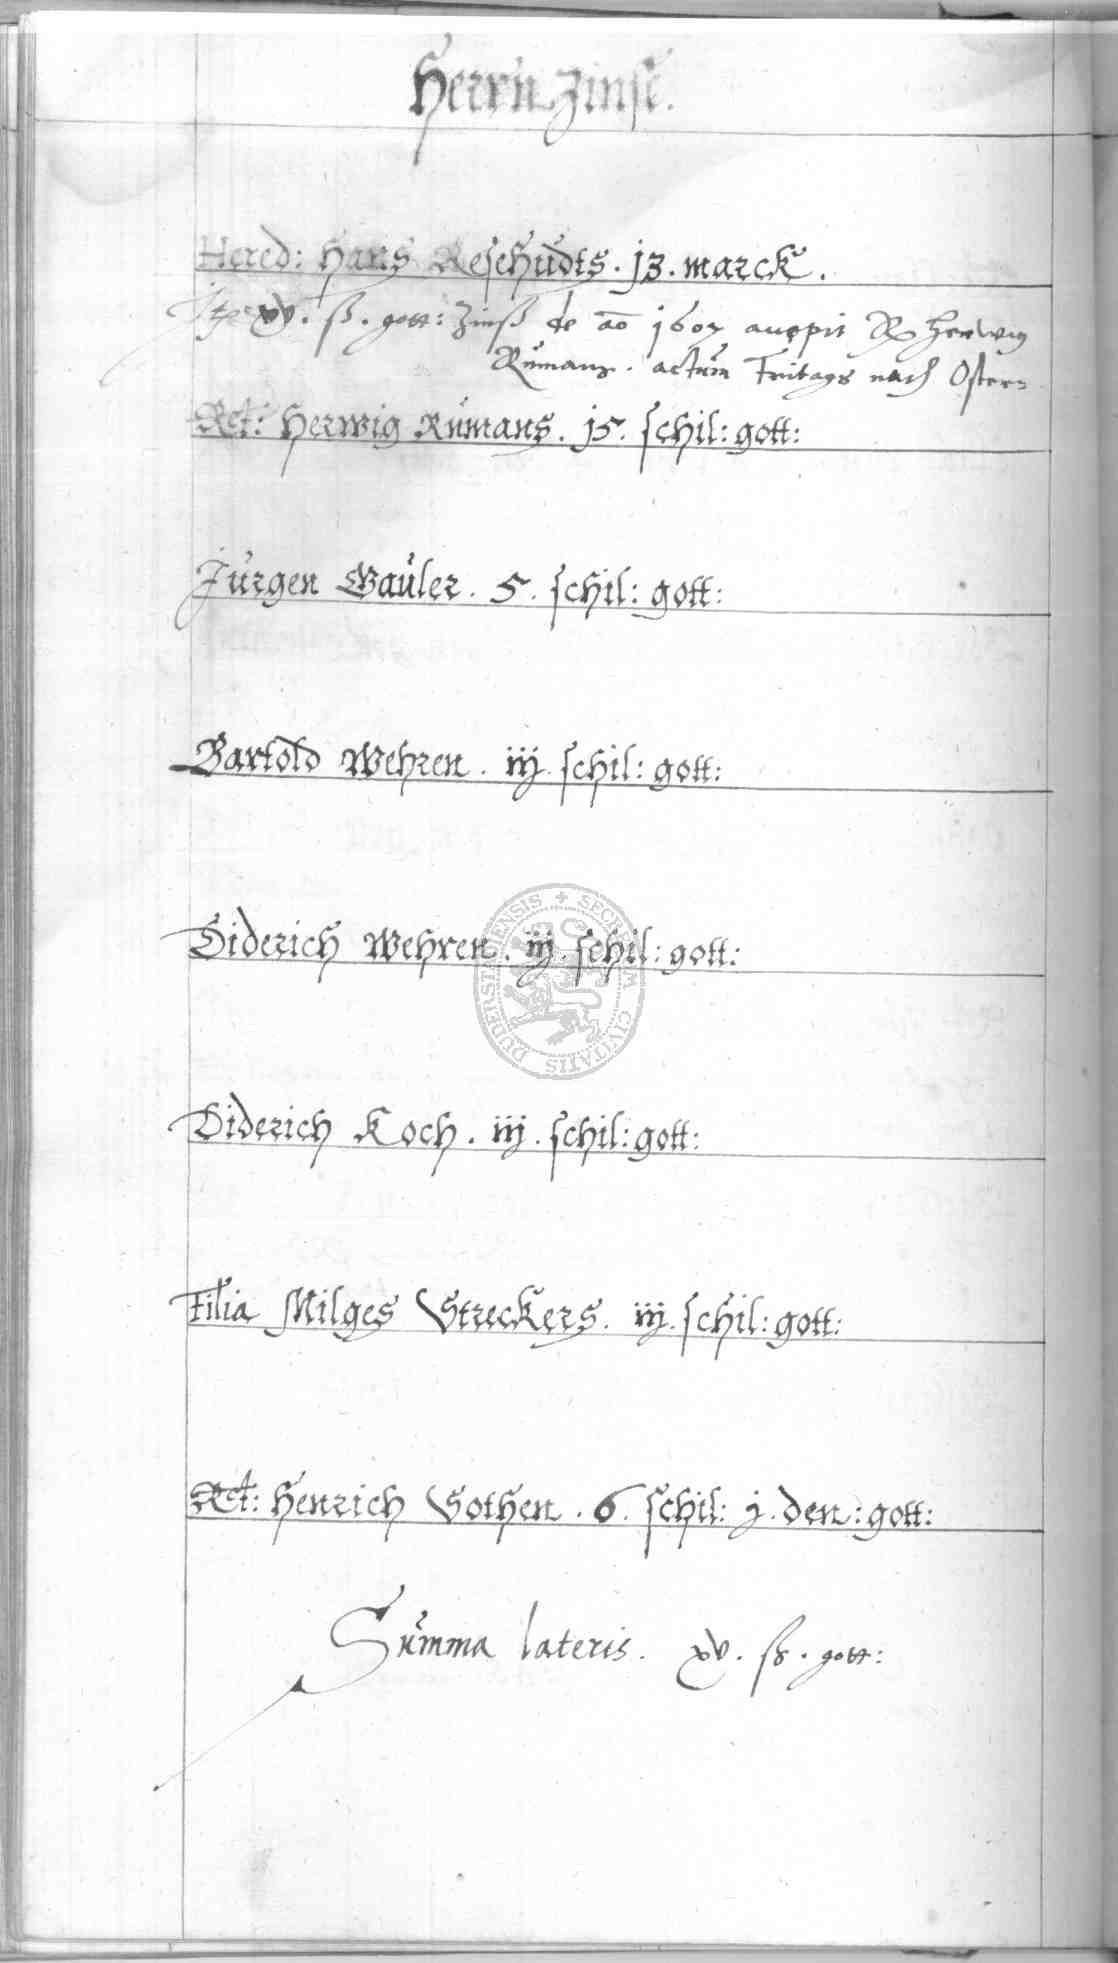 Herrn Zinse.
Hered: Hans Reschudts. 13. marck.
xv. ß. gott: Zinß de ao 1607 accepit R Herwig
Rumanz. actum Freitags nach Ostern
Ret: Herwig Rumans. 15. schil: gott:
Jurgen Gauler. 5. schil: gott:
Bartold Wehren. iij. schil: gott:
Diderich Wehren. iij. schil: gott:
SECRETUM CIVITATIS DUDERSTADIENSIS
Diderich Koch. iij. schil: gott:
Filia Milges Streckers. iij. schil: gott:
Ret: Henrich Vothen. 6. schil: j. den: gott:
Summa lateris. xv. ß. gott: